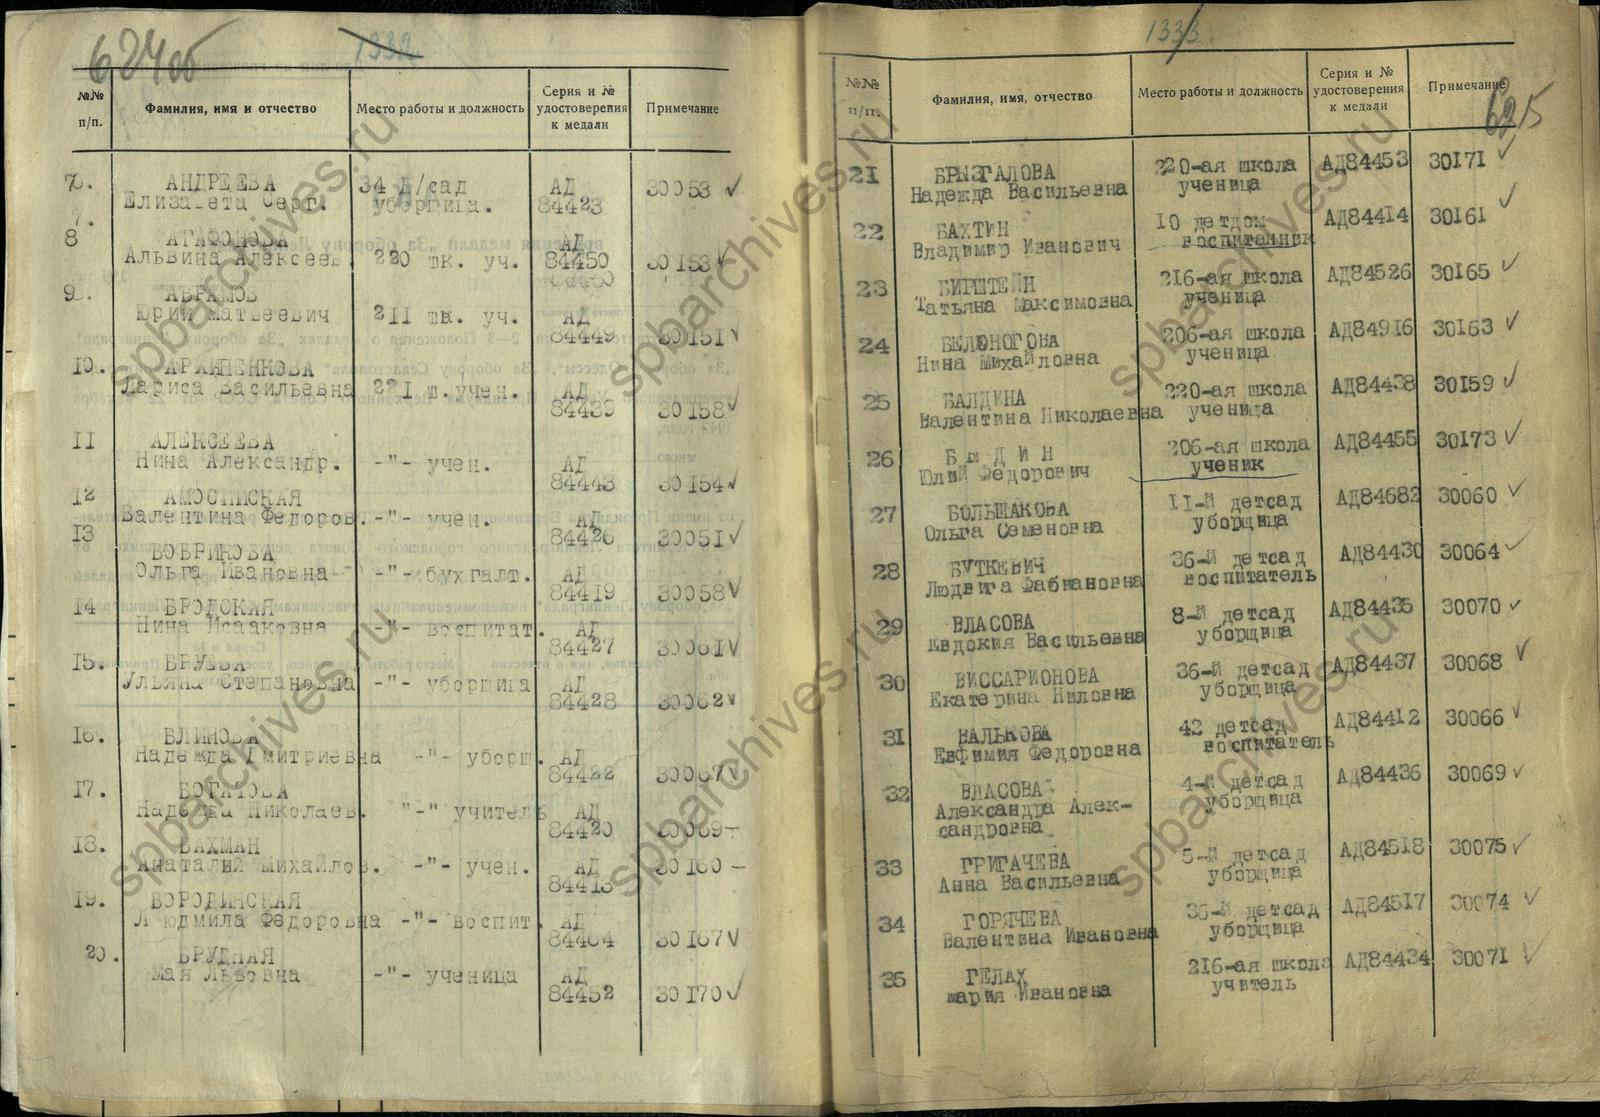 624об
1332
№№ п/п. Фамилия, имя и отчество Место работы и должность Серия и № удостоверения к медали Примечание
7. АНДРЕЕВА 34 Д/сад АД 30053 ✓
Елизавета Серг. уборщица. 84423
8 АГАФОНОВА АД
Альвина Алексеев. 220 шк. уч. 84450 30153 ✓
9. АБРАМОВ
Юрий Матвеевич 211 шк. уч. АД
84449 30151 ✓
10. АРХИПЕНКОВА
Лариса Васильевна 221 ш.учен. АД
84439 30158 ✓
11 АЛЕКСЕЕВА
Нина Александр. -"- учен. АД
84443 30154 ✓
12
Валентина Федоров. -"- учен. АД
84426 30051 ✓
13 БОБРИКОВА
Ольга Ивановна -"- бухгалт. АД
84419 30058 ✓
14 БРОДСКАЯ
Нина Исааковна -"- воспитат. АД
84427 30061 ✓
15. БРУЕВА
Ульяна Степановна -"- уборщица АД
84428 30062 ✓
16. БЛИНОВА
Надежда Дмитриевна -"- уборщ. АД
84422 30067 ✓
17. БОГАТОВА
Надежда Николаев. -"- учитель АД
84420 —
18. БАХМАН
Анаталий Михайлов. -"- учен. АД 30160 —
84413
19. БОРОДИНСКАЯ
Людмила Федоровна -"- воспит. АД
84464 30167 ✓
20. БРУДНАЯ
Мая Львовна -"- ученица АД
84452 30170 ✓
1333
625
№№ п/п. Фамилия, имя, отчество Место работы и должность Серия и № удостоверения к медали Примечание
21 БРЫЗГАЛОВА 220-ая школа АД84453 30171 ✓
Надежда Васильевна ученица
22 БАХТИН 10 детдом АД84414 30161 ✓
Владимир Иванович воспитанник
23 БИРШТЕЙН 216-ая школа АД84526 30165 ✓
Татьяна Максимовна ученица
24 БЕЛОНОГОВА 206-ая школа АД84916 30163 ✓
Нина Михайловна ученица
25 БАЛДИНА 220-ая школа АД84438 30159 ✓
Валентина Николаевна ученица
26 БЫДИН 206-ая школа АД84455 30173 ✓
Юлий Федорович ученик
27 БОЛЬШАКОВА 11-й детсад АД84682 30060 ✓
Ольга Семеновна уборщица
28 БУТКЕВИЧ 36-й детсад АД84430 30064 ✓
Людвига Фабиановна воспитатель
29 ВЛАСОВА 8-й детсад АД84435 30070 ✓
Евдокия Васильевна уборщица
30 ВИССАРИОНОВА 36-й детсад АД84437 30068 ✓
Екатерина Ниловна уборщица
31 ВАЛЬКОВА 42 детсад АД84412 30066 ✓
Евфимия Федоровна воспитатель
32 ВЛАСОВА 4-й детсад АД84436 30069 ✓
Александра Алек- уборщица
сандровна
33 ГРИГАЧЕВА 5-й детсад АД84518 30075 ✓
Анна Васильевна уборщица
34 ГОРЯЧЕВА 36-й детсад АД84517 30074 ✓
Валентина Ивановна уборщица
35 ГЕЛАХ 216-ая школа АД84434 30071 ✓
Мария Ивановна учитель
spbarchives.ru
spbarchives.ru
spbarchives.ru
spbarchives.ru
spbarchives.ru
spbarchives.ru